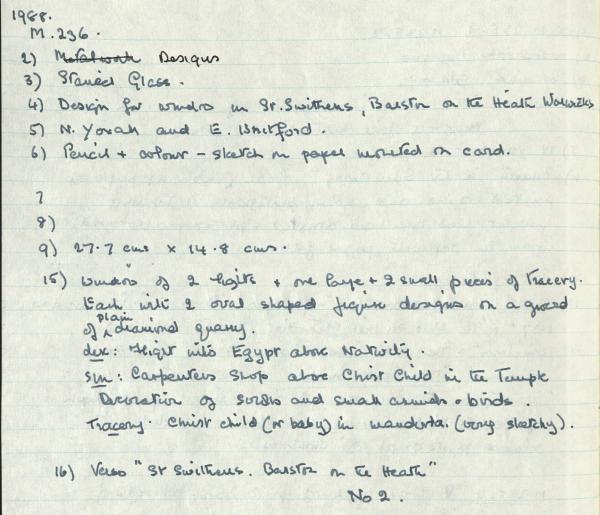 1988.
M.236.
2) Metalwork Designs
3) Stained Glass.
4) Design for window in St. Swithens, Barston on the Heath Warwicks
5) N. Yorath and E. Whitford.
6) Pencil + colour - sketch on paper mounted on card.
7
8)
9) 27.7 cms x 14.8 cms.
15) Window of 2 lights + one large + 2 small pieces of Tracery.
Each with 2 oval shaped figure designs on a ground
of plain diamond quarry.
dex: Flight into Egypt above Nativity.
sin: Carpenters Shop above Christ Child in the Temple
Decoration of scrolls and small animals + birds.
Tracery. Christ child (or baby) in mandorla. (very sketchy).
16) Verso "St Swithens. Barston on the Heath"
No 2.